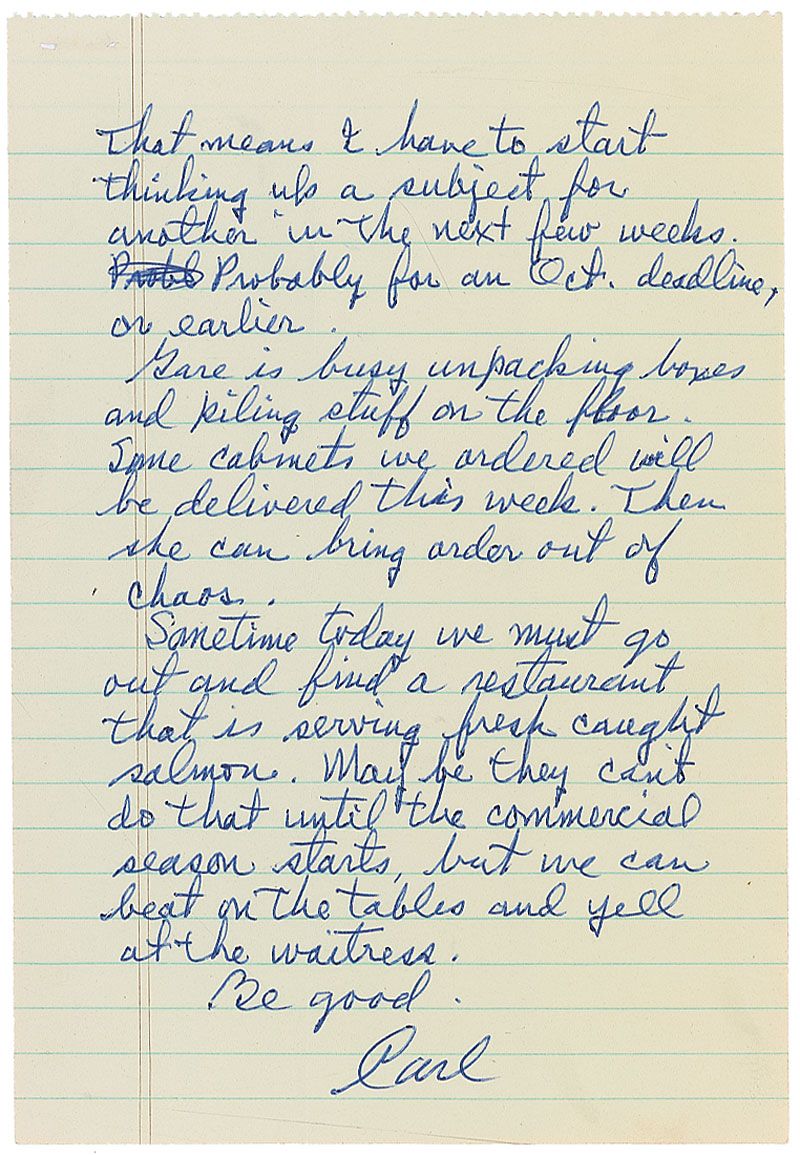 That means I have to start
thinking up a subject for
another in the next few weeks.
Probl Probably for an Oct. deadline,
or earlier.
Gare is busy unpacking boxes
and piling stuff on the floor.
Some cabinets we ordered will
be delivered this week. Then
she can bring order out of
chaos.
Sometime today we must go
out and find a restaurant
that is serving fresh caught
salmon. May be they can't
do that until the commercial
season starts, but we can
beat on the tables and yell
at the waitress.
Be good.
Carl